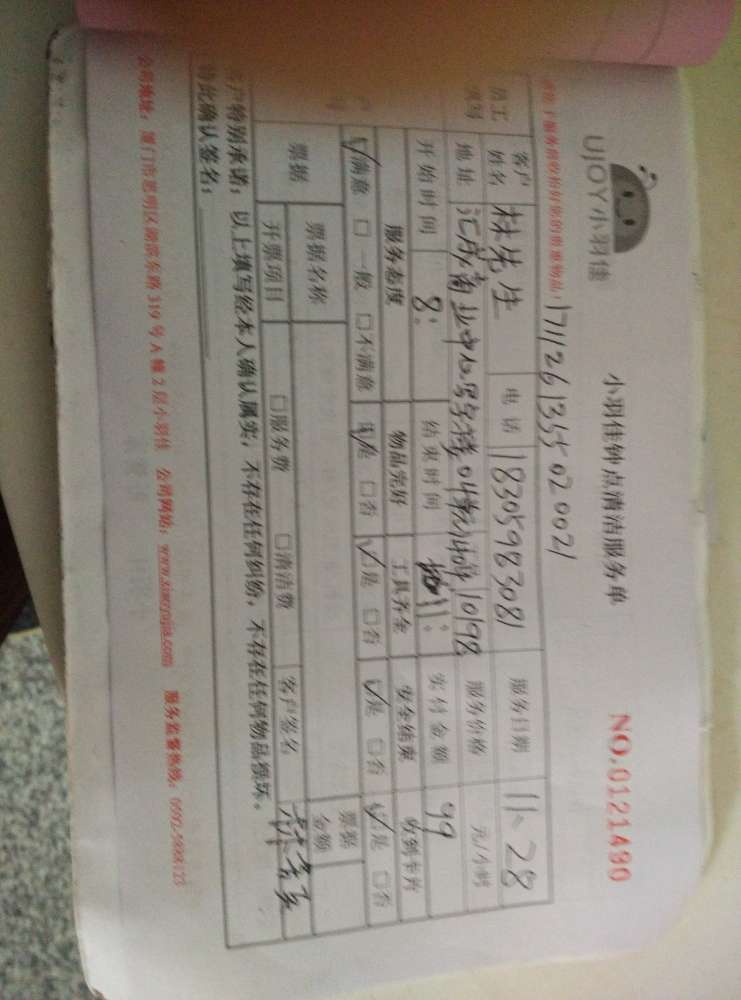 UJOY小羽佳
小羽佳钟点清洁服务单
NO.0121490
1711261355020021
客户姓名 林先生 电话 18305983081 服务日期 11、28
地址 汇成商业中心 服务价格 元/小时
开始时间 8: 结束时间 11: 实付金额 99
服务态度 物品完好 工具齐全 安全结束 收到卡片
☑满意 □一般 □不满意 ☑是 □否 ☑是 □否 ☑是 □否 ☑是 □否
票据 票据名称 票据金额
开票项目 □服务费 □清洁费 客户签名
客户特别承诺：以上填写经本人确认属实，不存在任何纠纷，不存在任何物品损坏。
特此确认签名：
公司地址：厦门市思明区湖滨东路319号A幢2层小羽佳 公司网站：www.xiaoyujia.com 服务监督热线：